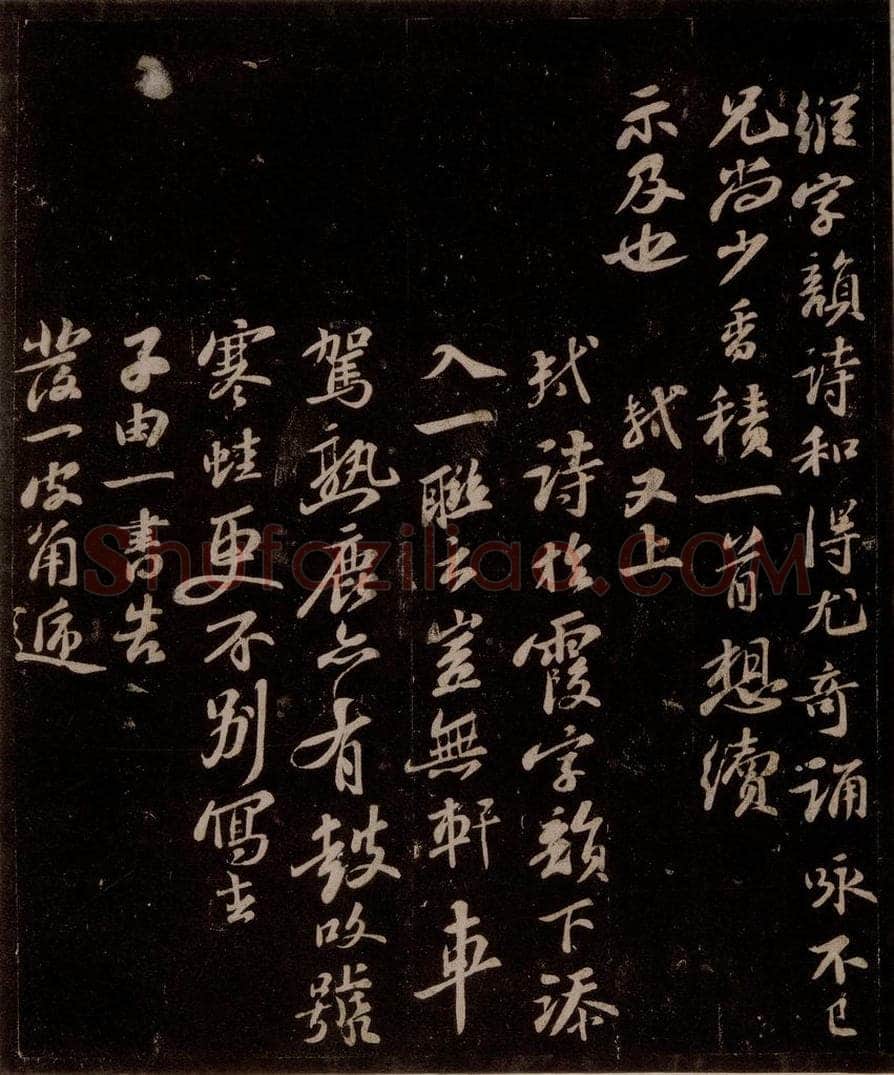 縱字韻詩和得尤奇誦咏不已
兄尚少香積一首想續
示及也
軾又上
軾詩於霞字韻下添
入一聯云豈無軒車
駕熟鹿亦有鼓吹號
寒蛙更不別寫去
子由一書告
發一皮角遞
Shufaziliao.COM